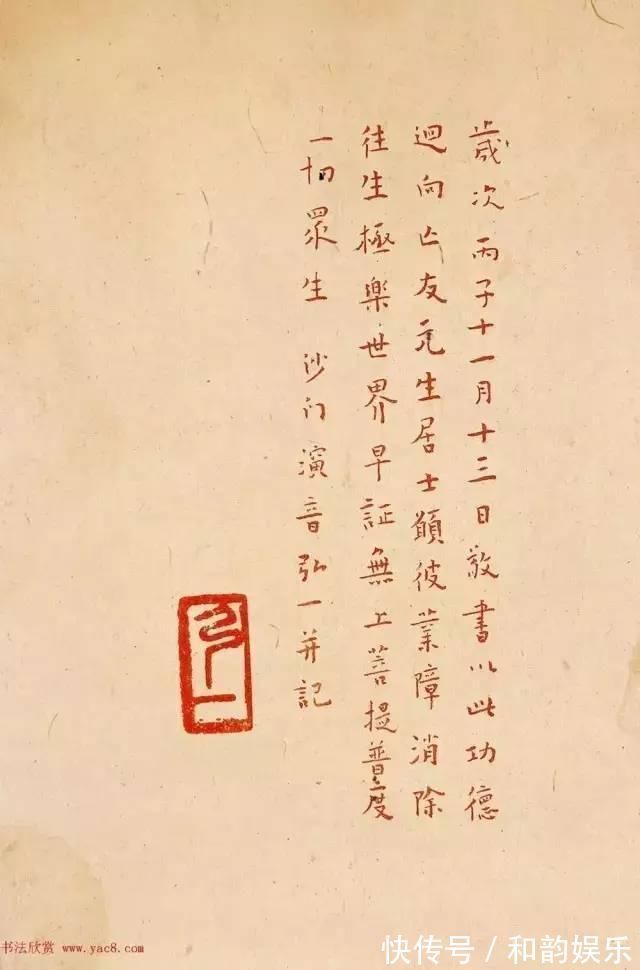 歲次丙子十一月十三日敬書以此功德
迴向亡友元生居士願彼業障消除
往生極樂世界早証無上菩提普度
一切眾生 沙门演音弘一并記
弘一
书法欣赏 www.yac8.com
快传号/和韵娱乐